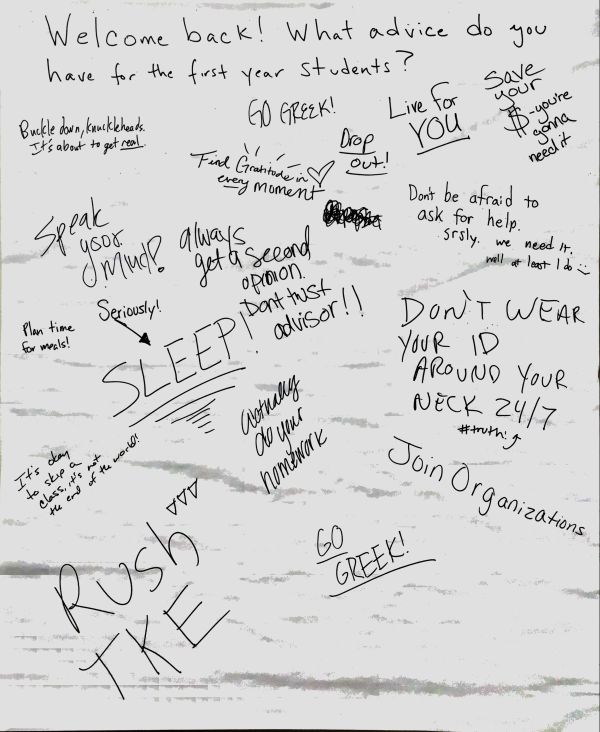 Welcome back! What advice do you
have for the first year students?
GO GREEK!
Live for
YOU
Save
your
$-you're
gonna
need it
Buckle down, knuckleheads.
It's about to get real.
Drop
out!
Find Gratitude in
every moment
Don't be afraid to
ask for help.
srsly. we need it.
well at least I do :)
Speak
your
Mind!
always
get a second
opinion.
Dont trust
advisor!!
Seriously!
Plan time
for meals!
SLEEP!
DON'T WEAR
YOUR ID
AROUND YOUR
NECK 24/7
#truth!
Actually
do your
homework
It's okay
to skip a
class, it's not
the end of the world!
Join Organizations
RUSH
TKE
GO
GREEK!